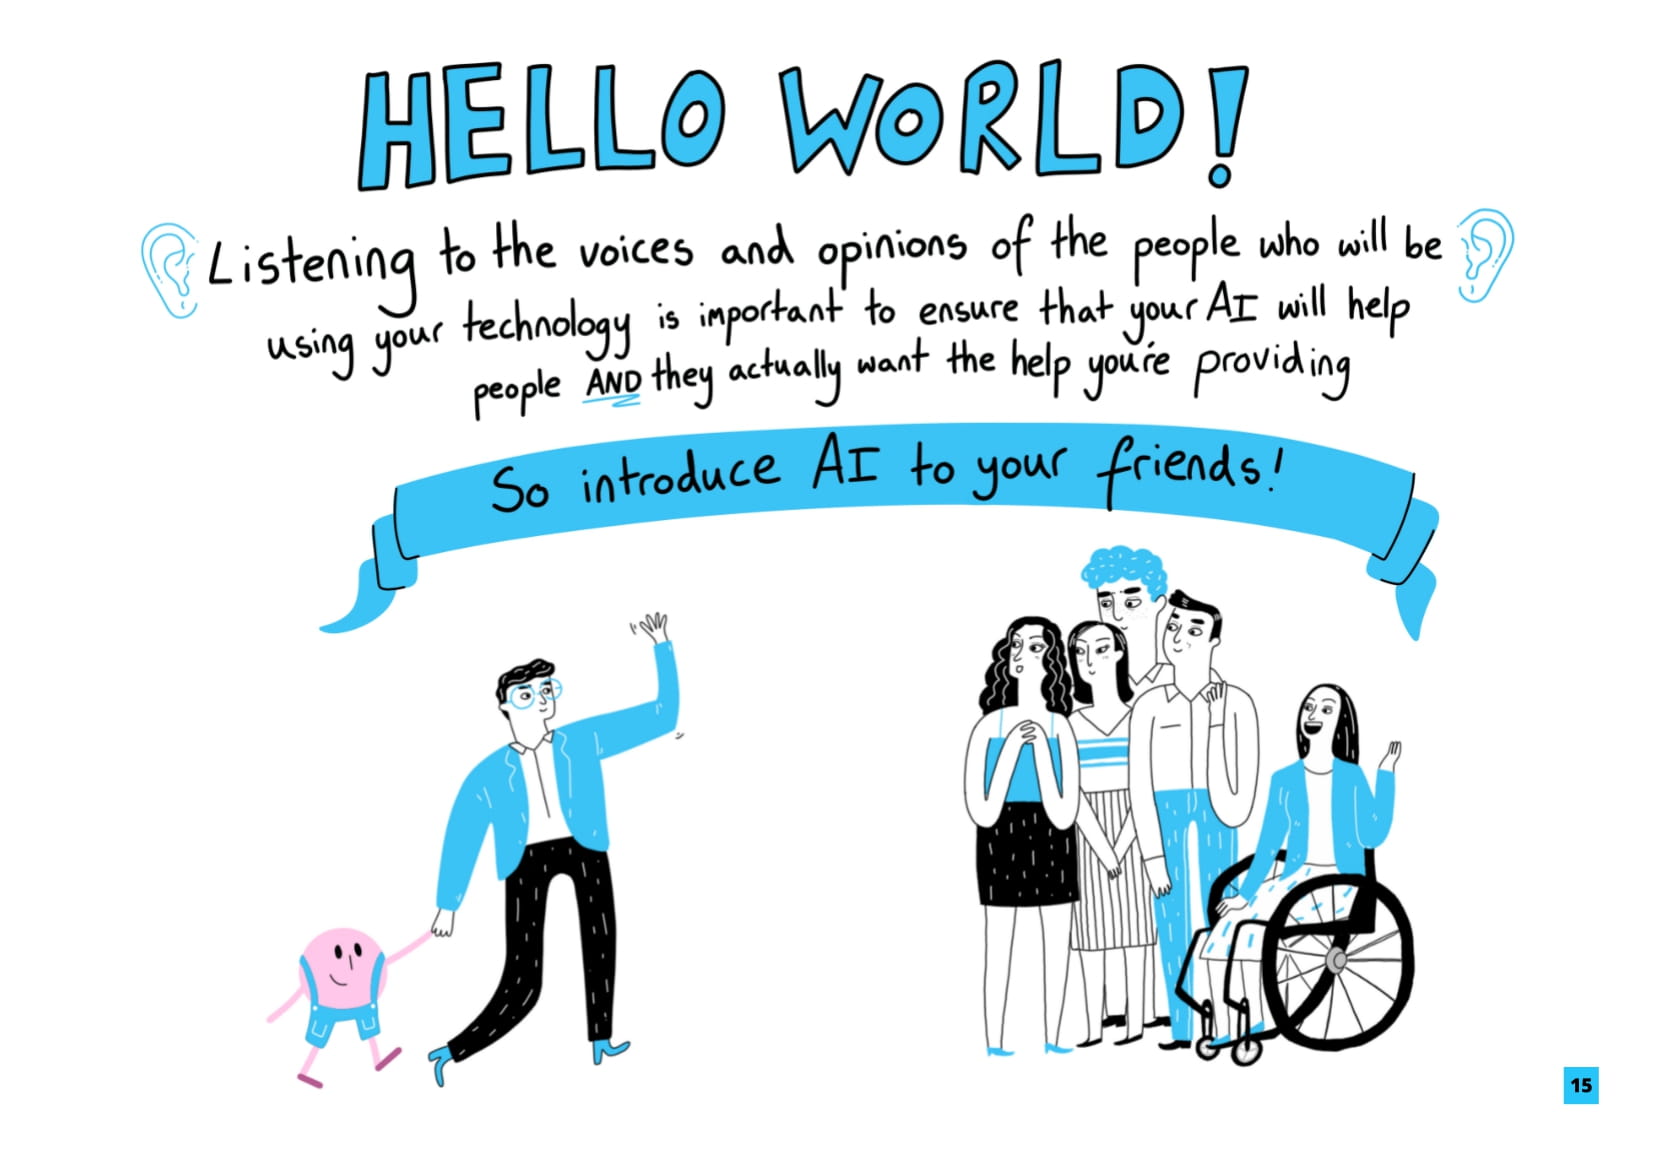 HELLO WORLD!
Listening to the voices and opinions of the people who will be
using your technology is important to ensure that your AI will help
people AND they actually want the help you're providing
So introduce AI to your friends!
15